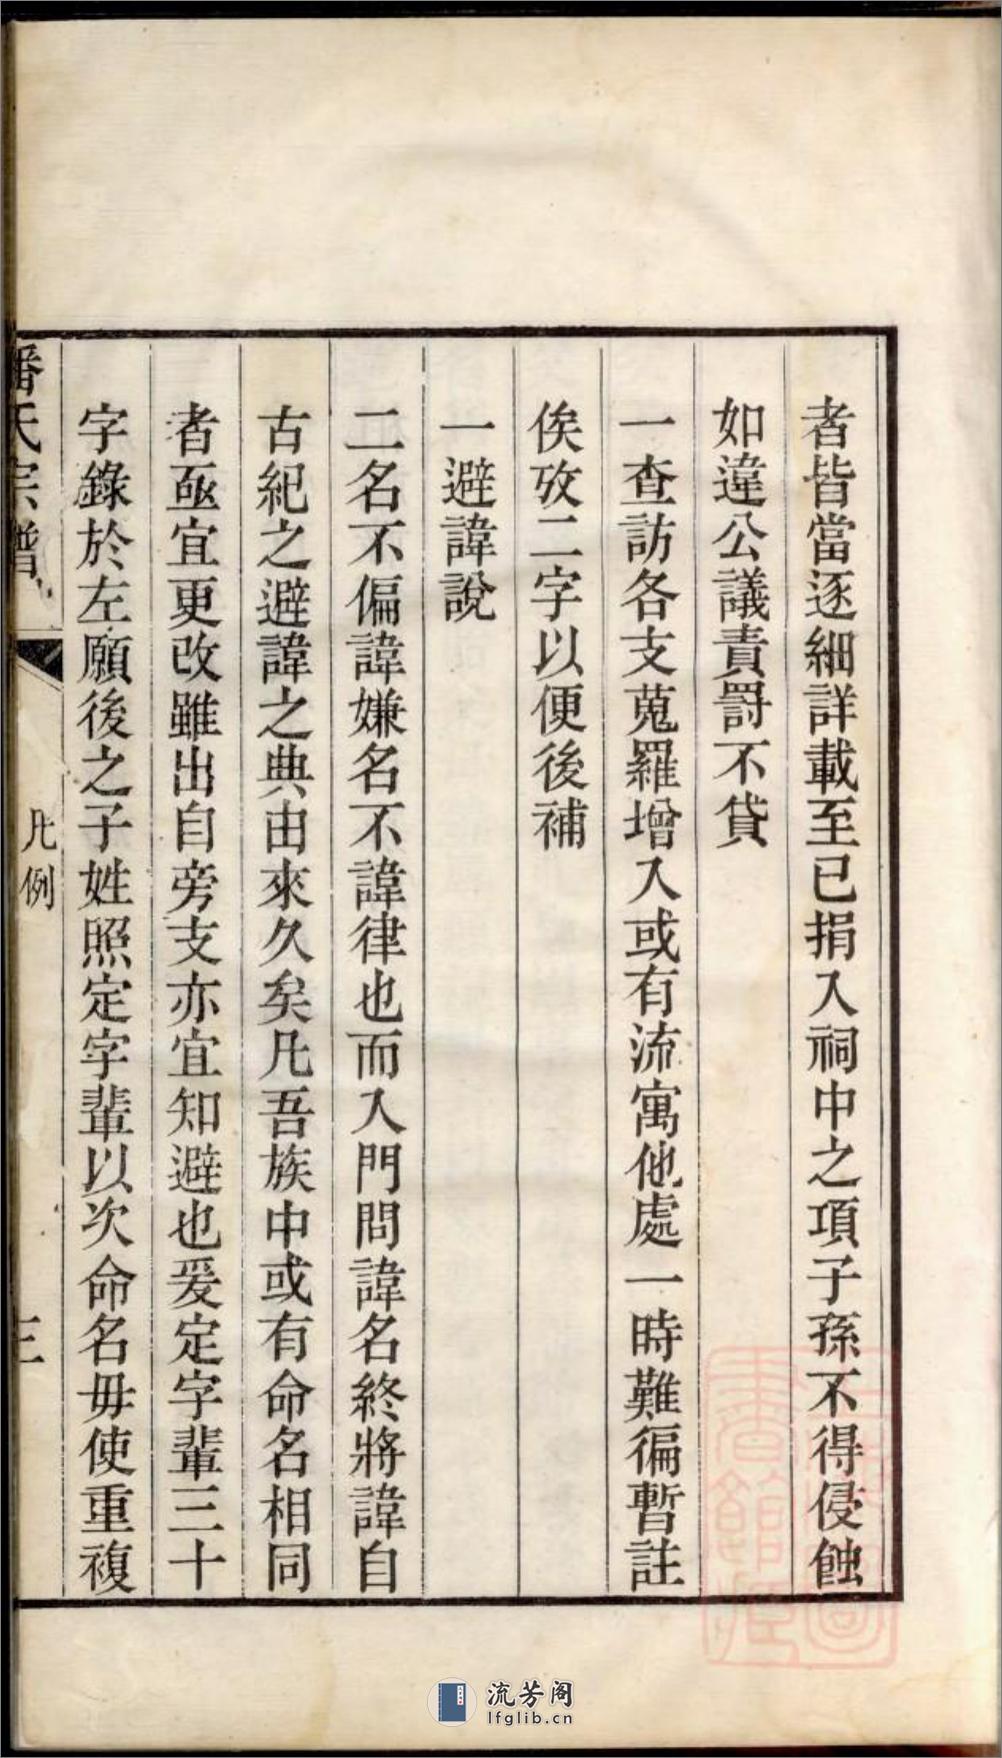 者皆當逐細詳載至已捐入祠中之項子孫不得侵蝕
如違公議責罰不貸
一查訪各支蒐羅增入或有流寓他處一時難徧暫註
俟攷二字以便後補
一避諱說
二名不偏諱嫌名不諱律也而入門問諱名終將諱自
古紀之避諱之典由來久矣凡吾族中或有命名相同
者亟宜更改雖出自旁支亦宜知避也爰定字輩三十
字錄於左願後之子姓照定字輩以次命名毋使重複
潘氏宗譜
凡例
三
流芳阁
lfglib.cn